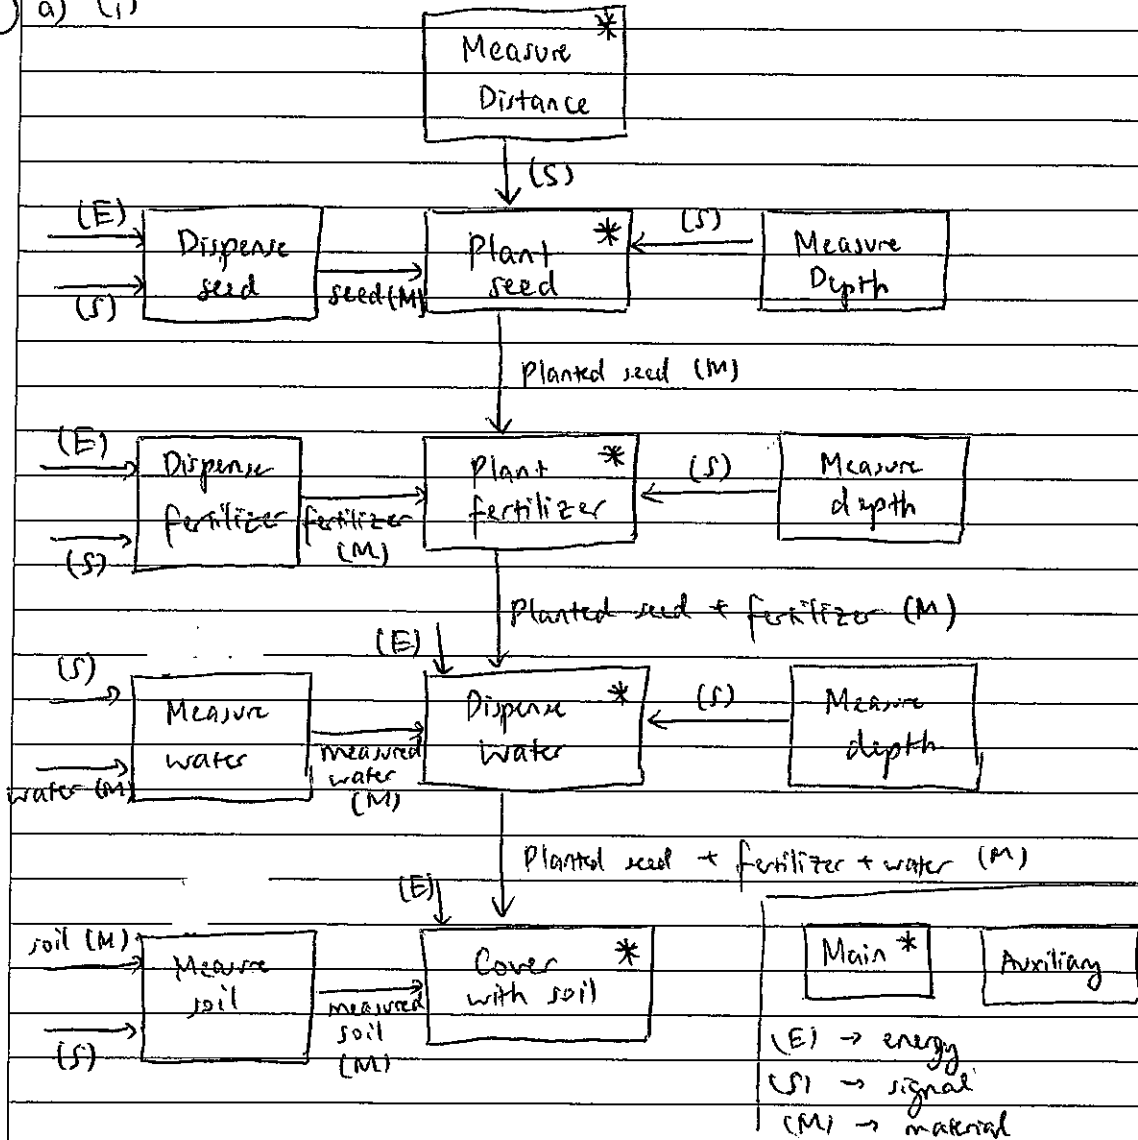 a) (i)
Measure *
Distance
(S)
(E)
Dispense
seed
(S)
seed (M)
Plant *
seed
(S)
Measure
Depth
Planted seed (M)
(E)
Dispense
fertilizer
(S)
fertilizer
(M)
Plant *
fertilizer
(S)
Measure
depth
Planted seed + fertilizer (M)
(E)
(S)
Measure
water
water (M)
measured
water
(M)
Dispense *
water
(S)
Measure
depth
Planted seed + fertilizer + water (M)
(E)
soil (M)
Measure
soil
(S)
measured
soil
(M)
Cover *
with soil
Main *
Auxiliary
(E) → energy
(S) → signal
(M) → material